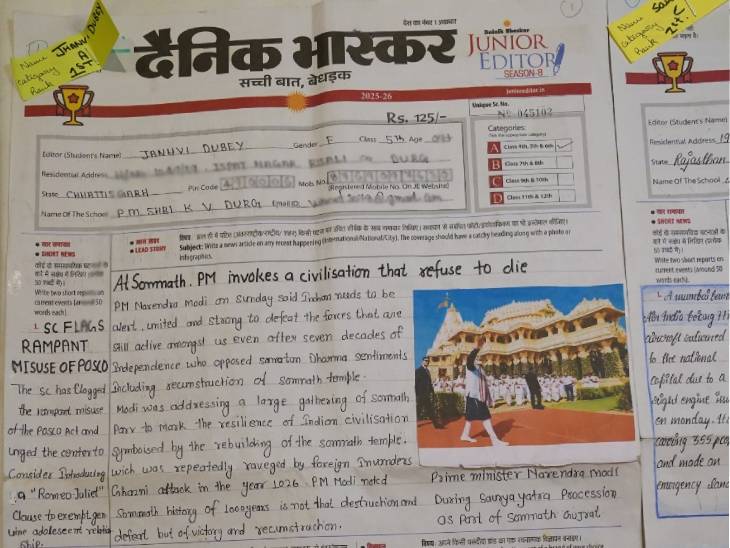 Name JHANVI DUBEY
Category A
Rank 1ST
देश का नंबर 1 अखबार
दैनिक भास्कर
सच्ची बात, बेधड़क
Dainik Bhaskar
JUNIOR
EDITOR
SEASON-8
2025-26
Junioreditor.in
Rs. 125/-
Unique Sr. No.
No 045102
Editor (Student's Name) JANHVI DUBEY Gender F Class 5th Age
Residential Address ISPAT NAGAR RISALI DURG
State CHHATTISGARH Pin Code Mob. No.
(Registered Mobile No. On JE Website)
Name Of The School P.M. SHRI K V DURG
Categories:
A Class 4th, 5th & 6th
B Class 7th & 8th
C Class 9th & 10th
D Class 11th & 12th
लघु समाचार
SHORT NEWS
Write two short reports on
current events (around 50
words each).
1. SC FLAGS
RAMPANT
MISUSE OF POSCO
The SC has flogged
the rampant misuse
of the POSCO Act and
urged the center to
Consider Introducing
a "Romeo Juliet"
Clause to exempt gen
uine adolescent relatio
ship.
LEAD STORY
Subject: Write a news article on any recent happening (International/National/City). The coverage should have a catchy heading along with a photo or
infographics.
At Somnath. PM invokes a civilisation that refuse to die
PM Narendra Modi on Sunday said Indian needs to be
alert, united and strong to defeat the forces that are
still active amongst us even after seven decades of
Independence who opposed sanatan Dharma sentiments
Including recunstruction of somnath temple.
Modi was addressing a large gathering of somnath
Parv to mark the resilience of Indian civilisation
Symboised by the rebuilding of the somnath temple.
wich was repeatedly raveged by foreign Invanders
Ghazni attack in the year 1026. PM Modi noted
Somnath history of 1000 years is not that destruction and
defeat but of victory and recunstruction.
Prime minister Narendra modi
During Saurya yatra Procession
as Part of Somnath Gujrat
Name
Category C
Rank 1st
Editor (Student's Name)
Residential Address 19
State Rajasthan
Name Of The School
लघु समाचार
SHORT NEWS
Write two short reports on
current events (around 50
words each).
A mumbai
Air India
aircraft returned
to the national
capital due to a
right engine issu
on monday. It
carring 355 peop
and made an
emergency land